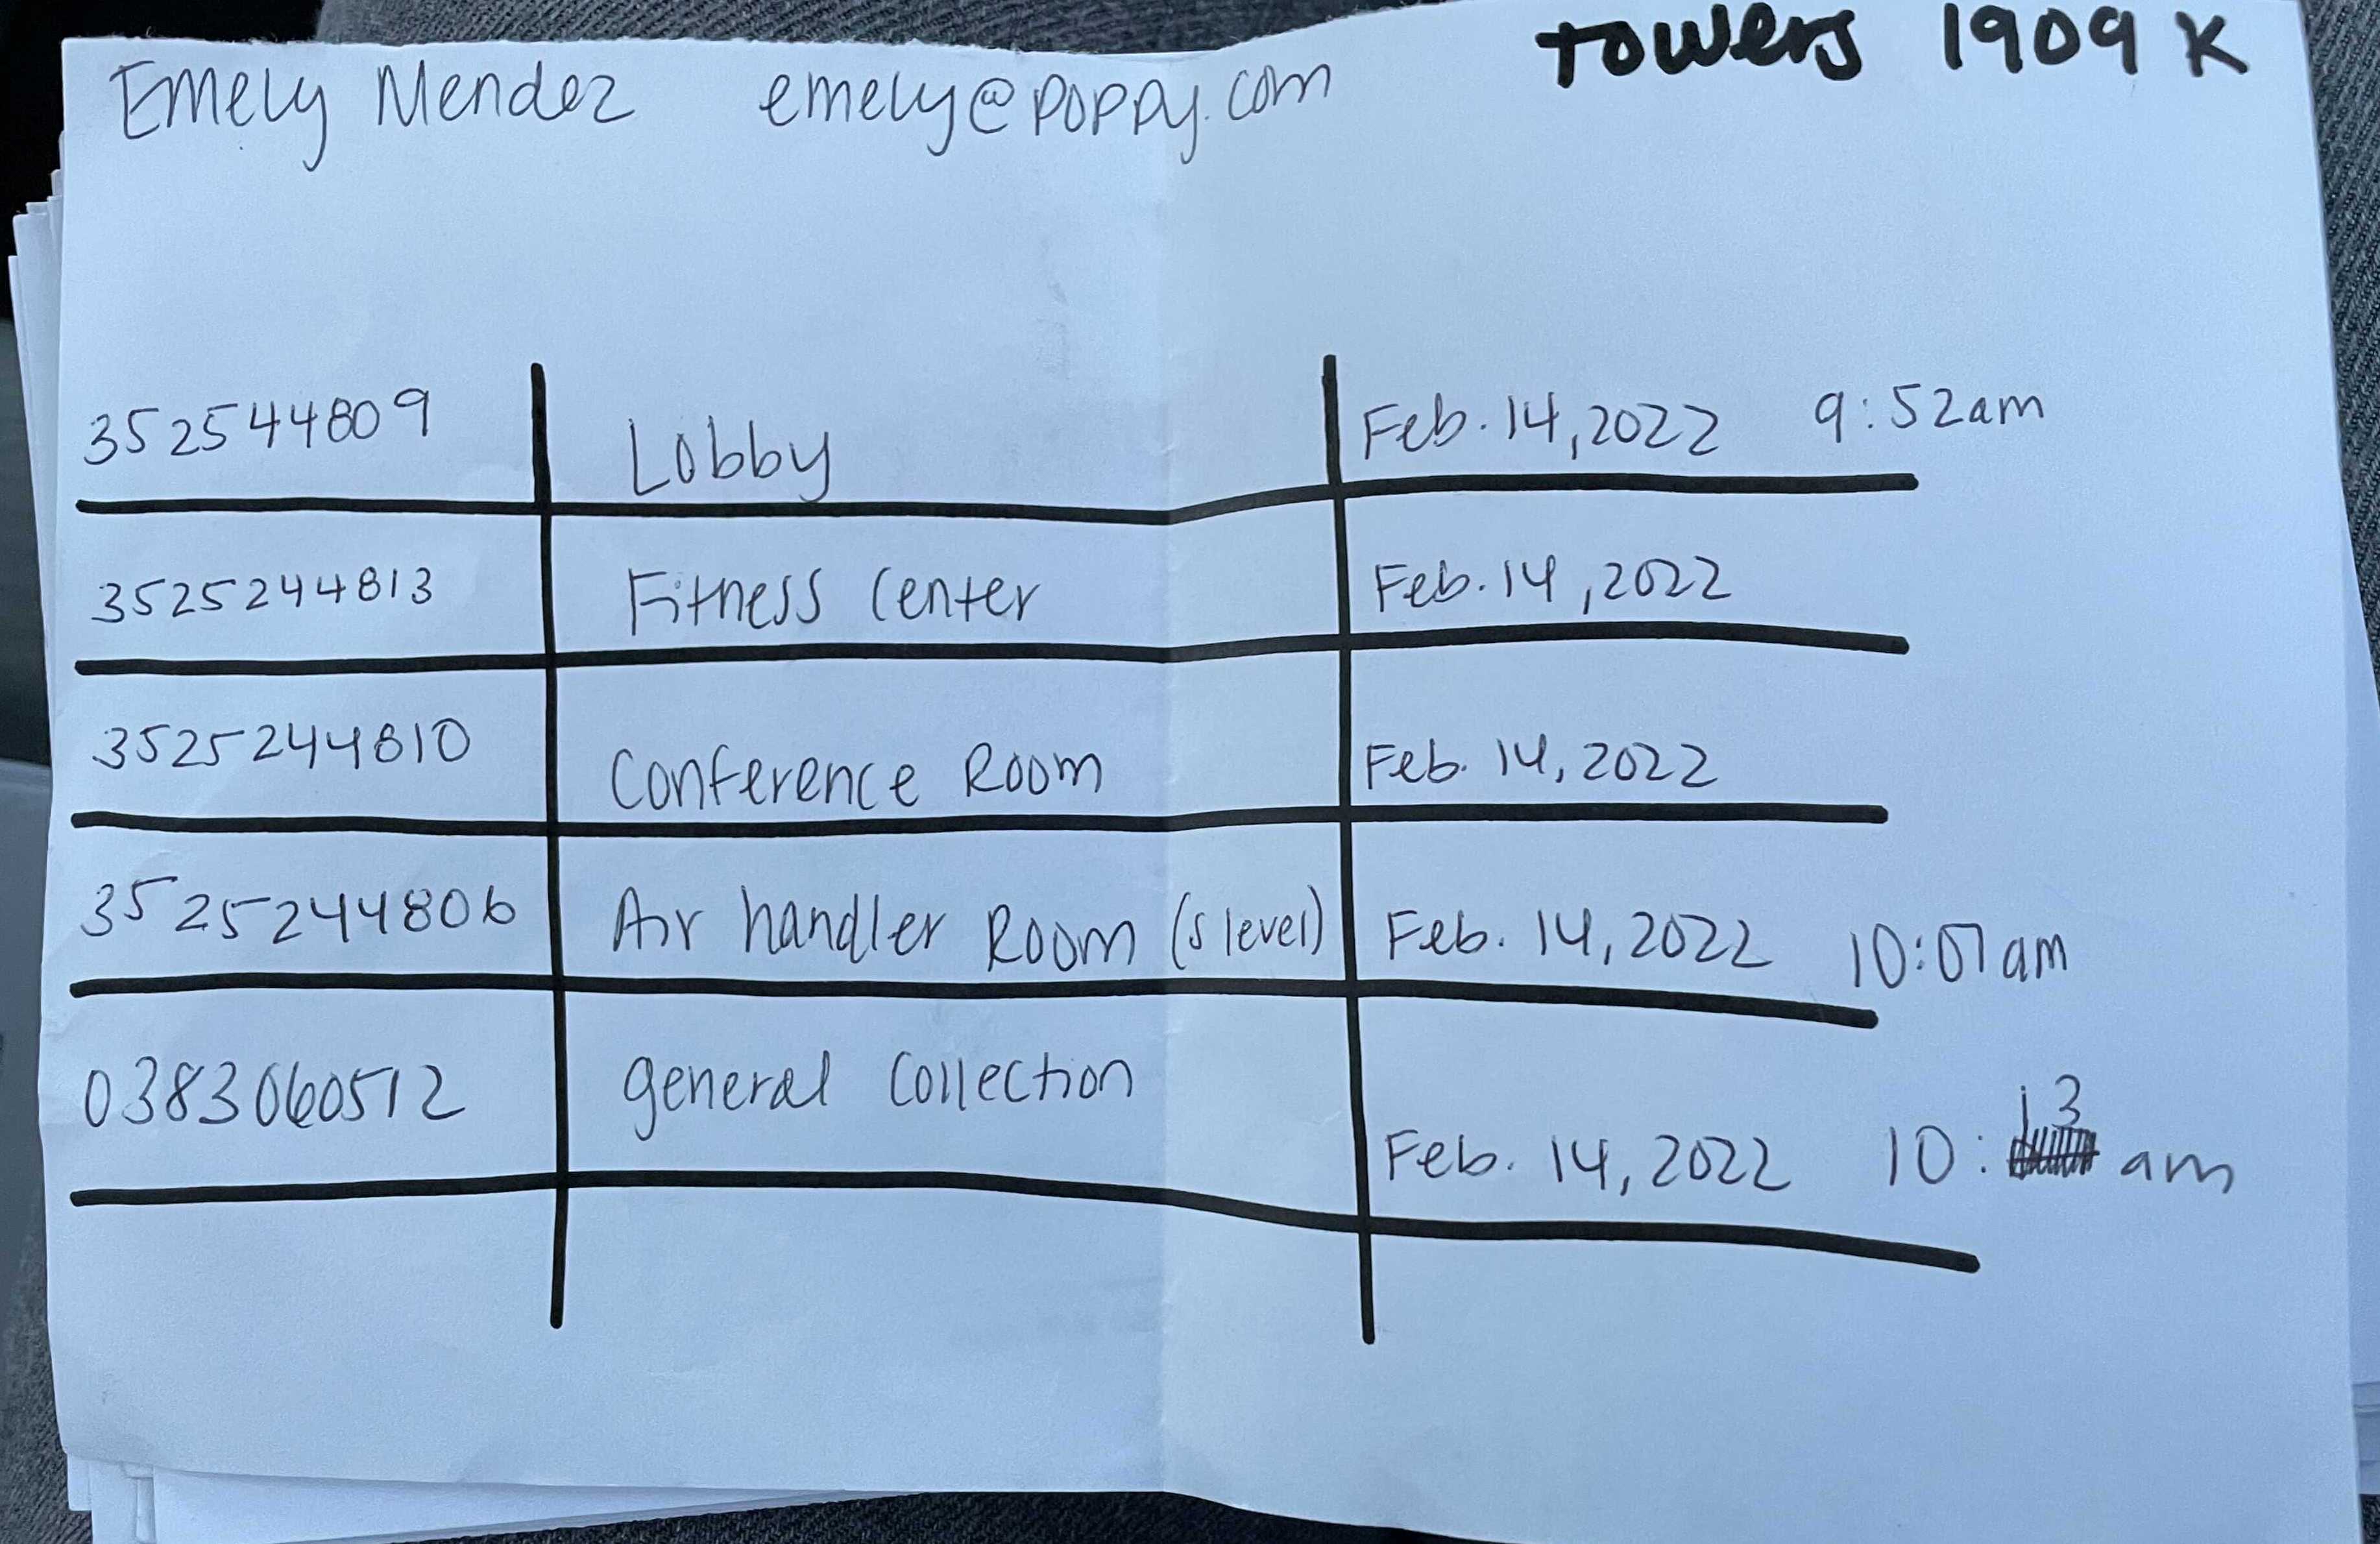 towers 1909 K
Emely Mendez emely@poppy.com
352544809 Lobby Feb. 14, 2022 9:52am
3525244813 Fitness Center Feb. 14, 2022
3525244810 Conference Room Feb. 14, 2022
3525244806 Air handler Room (s level) Feb. 14, 2022 10:07am
0383060512 general Collection Feb. 14, 2022 10:13 am